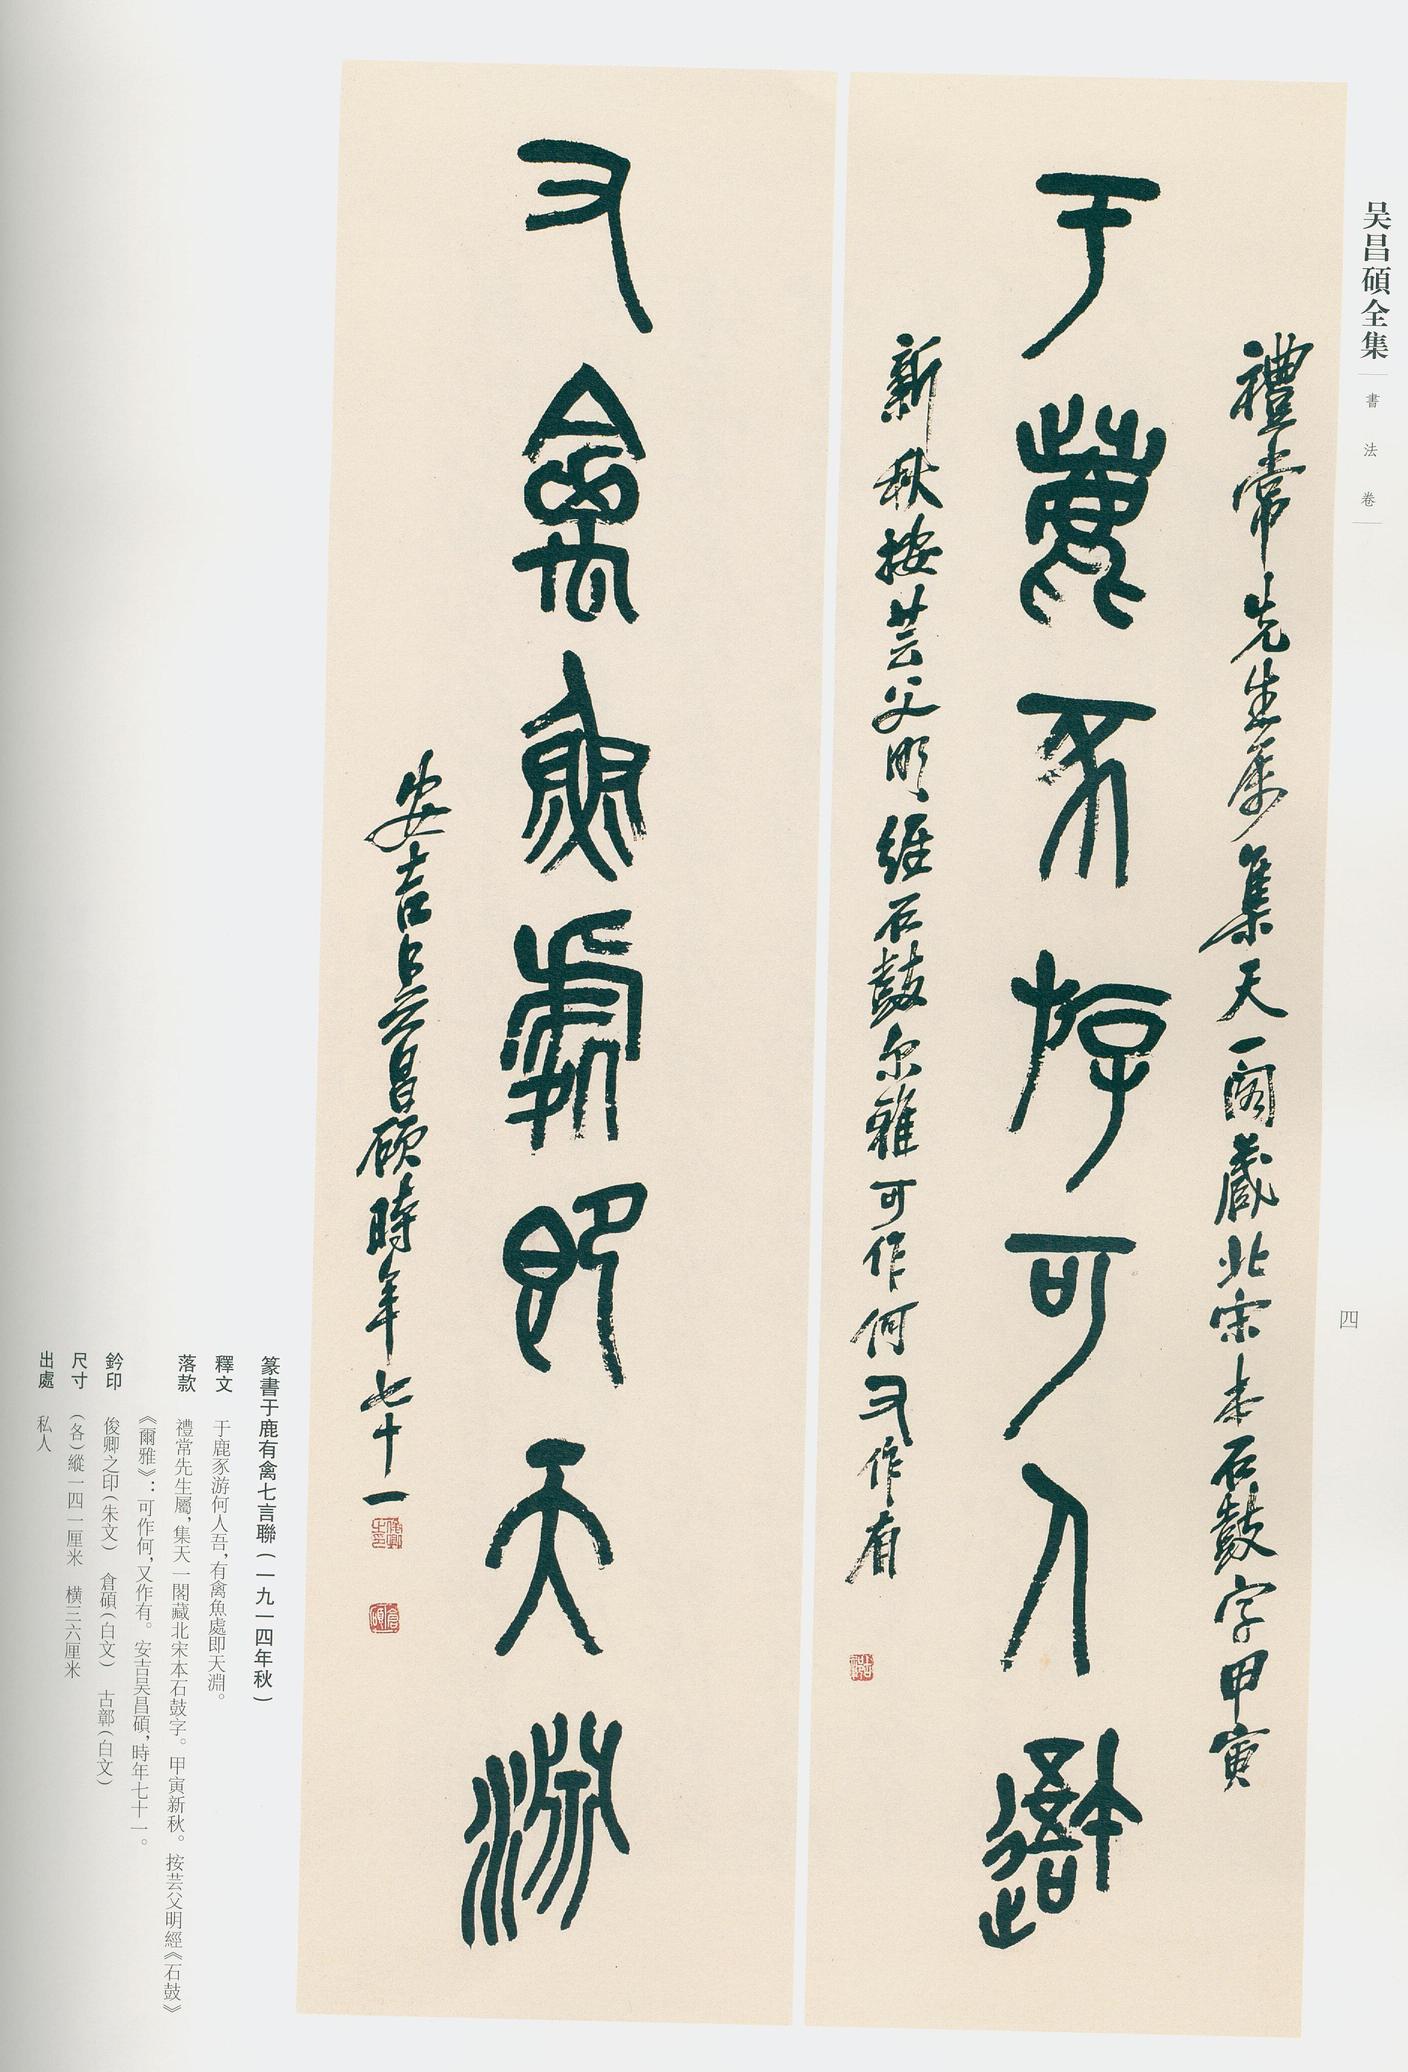 吴昌碩全集
書法卷
四
禮常先生屬集天一閣藏北宋本石鼓字甲寅
于鹿豕游可人䢩
新秋按芸父明經石鼓尔雅可作何又作有
又禽魚處即天淵
安吉吳昌碩時年七十一
篆書于鹿有禽七言聯（一九一四年秋）
釋文 于鹿豕游何人吾，有禽魚處即天淵。
落款 禮常先生屬，集天一閣藏北宋本石鼓字。甲寅新秋。按芸父明經《石鼓》
《爾雅》：可作何，又作有。安吉吴昌碩，時年七十一。
鈐印 俊卿之印（朱文） 倉碩（白文） 古鄣（白文）
尺寸 （各）縱一四一厘米 横三六厘米
出處 私人